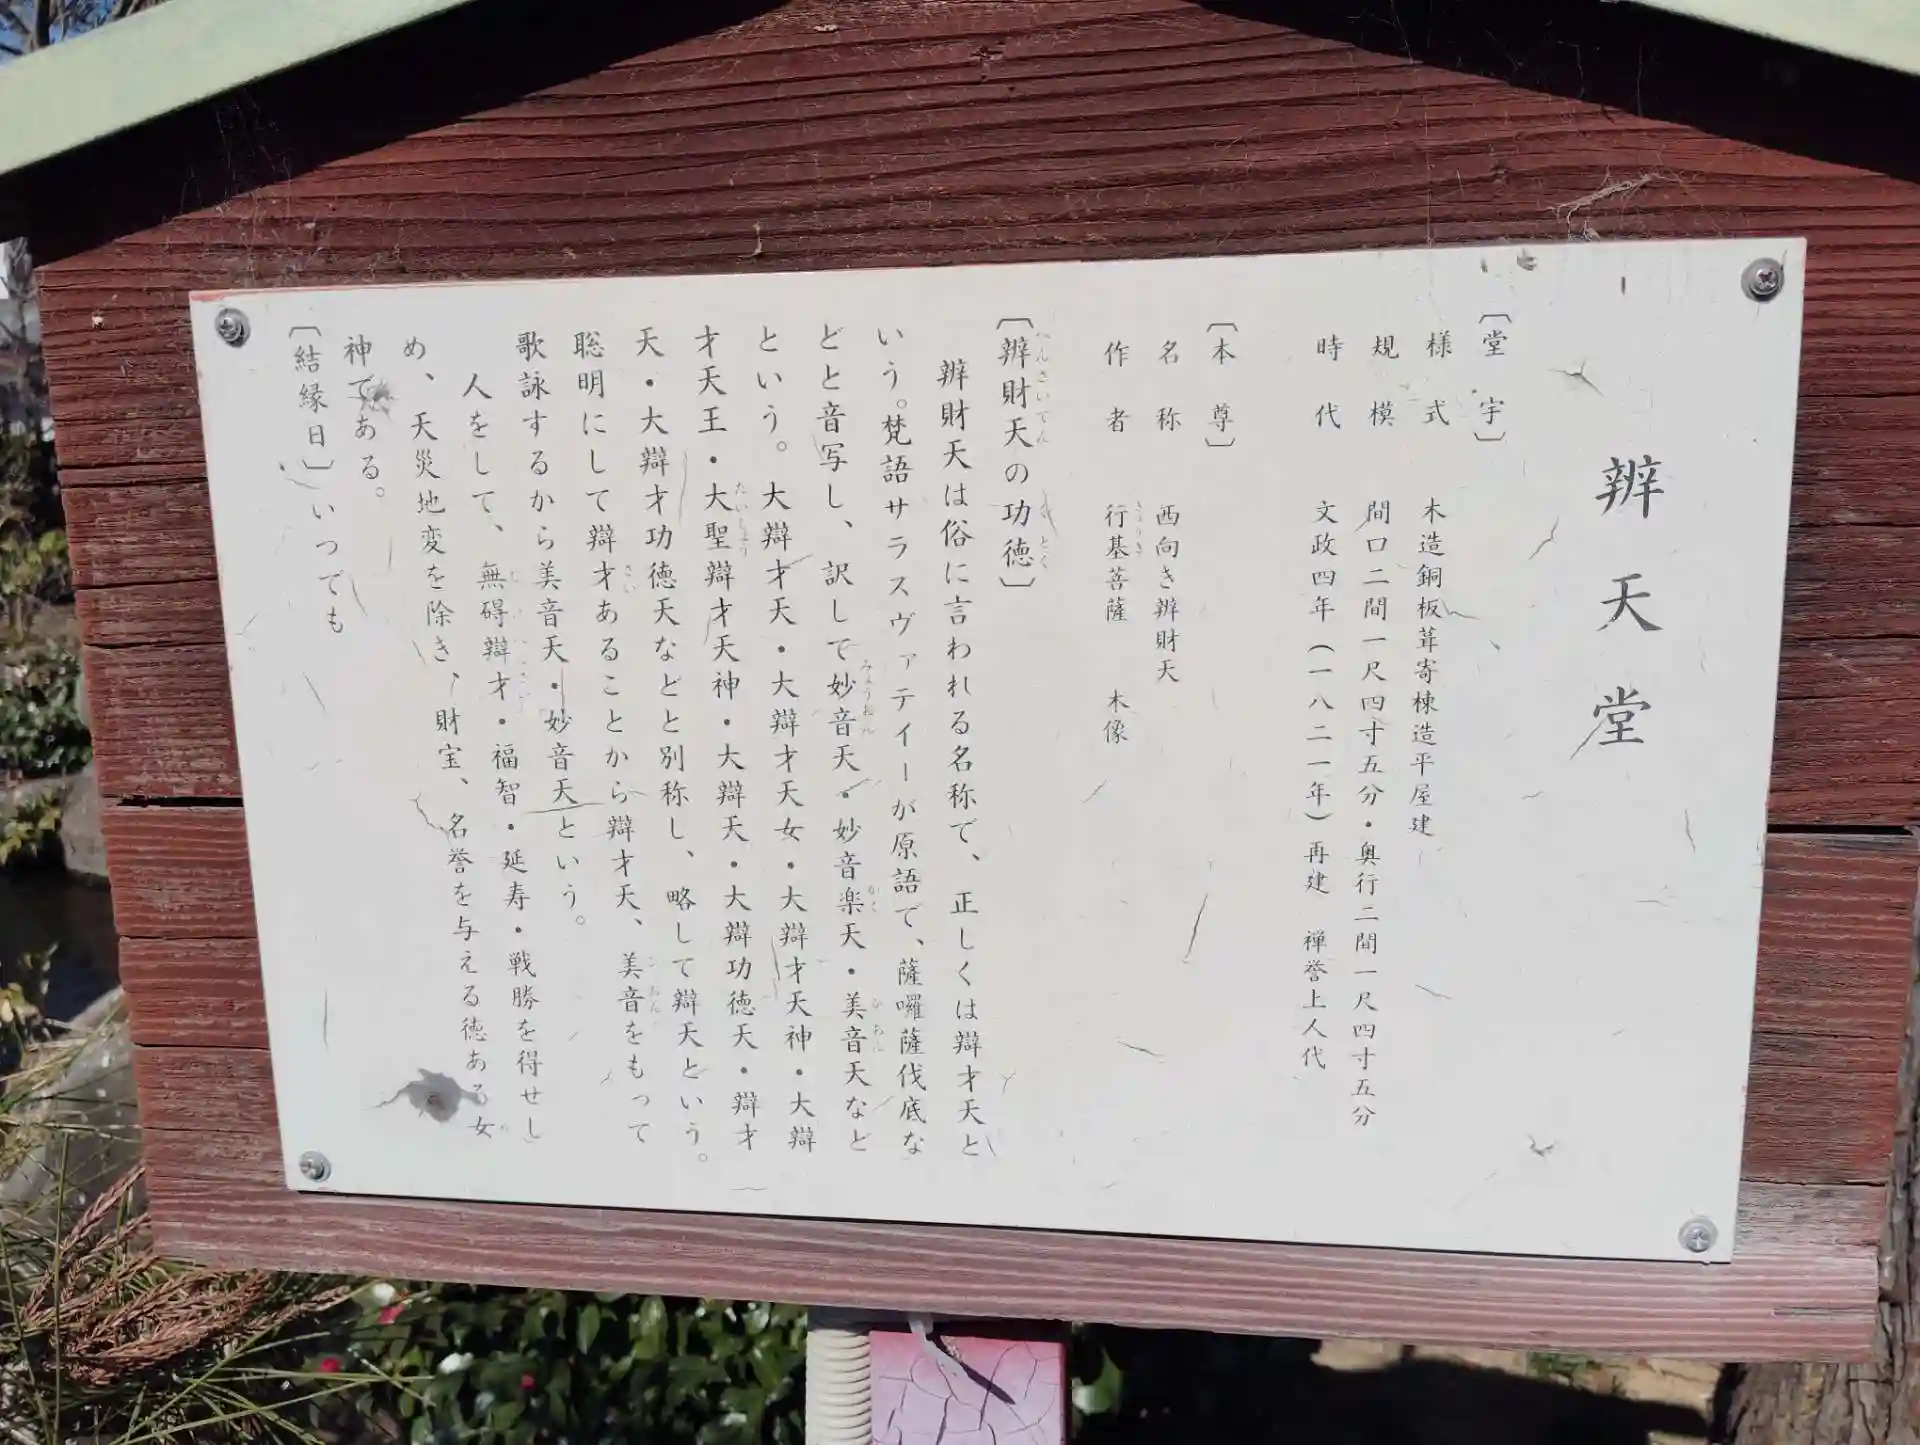 辨天堂
〔堂 宇〕
様 式 木造銅板葺寄棟造平屋建
規 模 間口二間一尺四寸五分・奥行二間一尺四寸五分
時 代 文政四年(一八二一年)再建 禅誉上人代
〔本 尊〕
名 称 西向き辨財天
作 者 行基菩薩 木像
〔辨財天の功徳〕
辨財天は俗に言われる名称で、正しくは辯才天と
いう。梵語サラスヴァティーが原語で、薩囉薩伐底な
どと音写し、訳して妙音天・妙音楽天・美音天など
という。大辯才天・大辯才天女・大辯才天神・大辯
才天王・大聖辯才天神・大辯天・大辯功徳天・辯才
天・大辯才功徳天などと別称し、略して辯天という。
聡明にして辯才あることから辯才天、美音をもって
歌詠するから美音天・妙音天という。
人をして、無碍辯才・福智・延寿・戦勝を得せし
め、天災地変を除き、財宝、名誉を与える徳ある女
神である。
〔結縁日〕いつでも